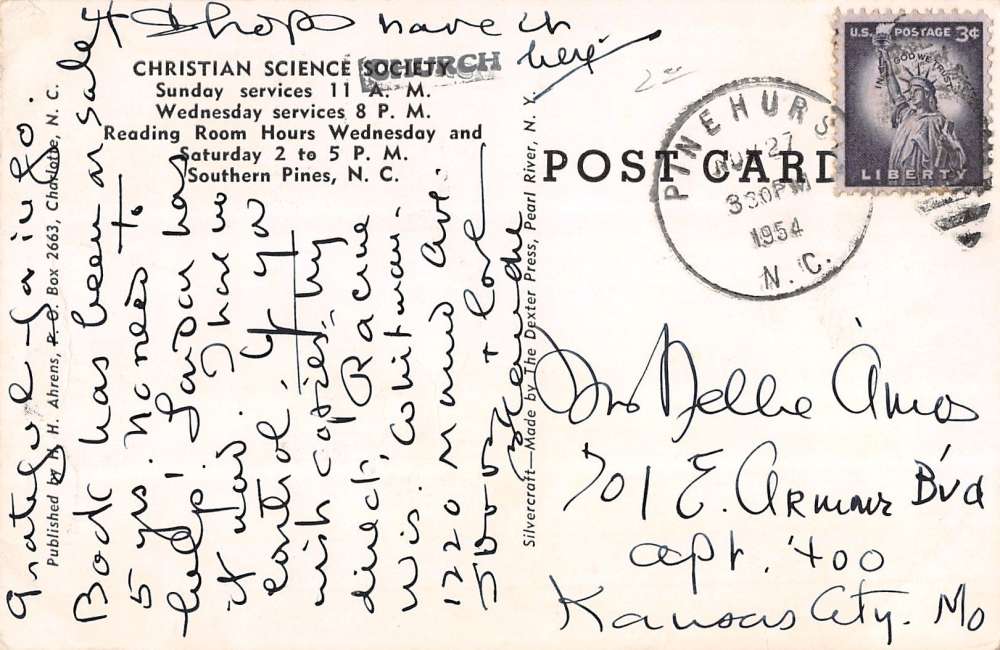 & I hope have it
here
CHRISTIAN SCIENCE SOCIETY
CHURCH
Sunday services 11 A. M.
Wednesday services 8 P. M.
Reading Room Hours Wednesday and
Saturday 2 to 5 P. M.
Southern Pines, N. C.
Grateful for info.
Book has been on sale
5 yrs. No need to
help! London has
it now. I have no
control. If you
wish copies try
direct, Racine
Wis. Whitman.
1220 Mound Ave.
+ love
Published by H. H. Ahrens, P. O. Box 2663, Charlotte, N. C.
Silvercraft—Made by The Dexter Press, Pearl River, N. Y.
POST CARD
PINEHURST
NOV 27
330PM
1954
N.C.
U.S. POSTAGE 3¢
IN GOD WE TRUST
LIBERTY
Mrs Nellie Amos
701 E. Armour Bvd
apt. 400
Kansas City. Mo